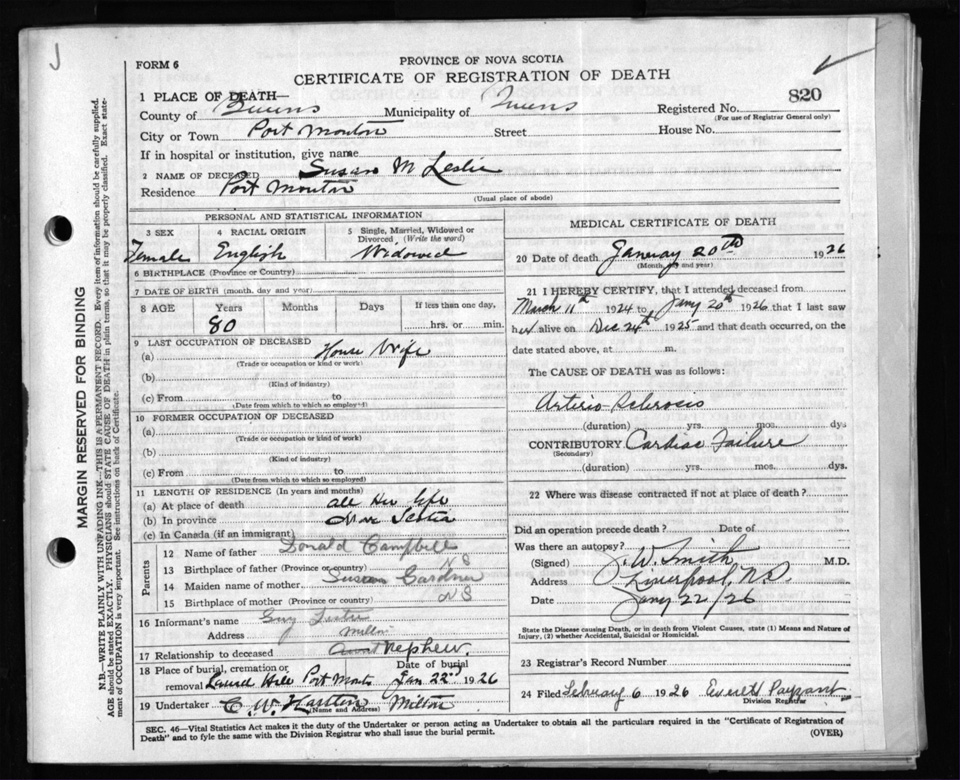 FORM 6
PROVINCE OF NOVA SCOTIA
CERTIFICATE OF REGISTRATION OF DEATH
820
1 PLACE OF DEATH—
County of Queens Municipality of Queens Registered No.
(For use of Registrar General only)
City or Town Port Mouton Street House No.
If in hospital or institution, give name
2 NAME OF DECEASED Susan M Leslie
Residence Port Mouton
(Usual place of abode)
PERSONAL AND STATISTICAL INFORMATION
3 SEX 4 RACIAL ORIGIN 5 Single, Married, Widowed or Divorced, (Write the word)
Female English Widowed
6 BIRTHPLACE (Province or Country)
7 DATE OF BIRTH (month, day and year)
8 AGE Years Months Days If less than one day,
80 hrs. or min.
9 LAST OCCUPATION OF DECEASED
(a) House Wife
(Trade or occupation or kind or work)
(b)
(Kind of industry)
(c) From to
(Date from which to which so employed)
10 FORMER OCCUPATION OF DECEASED
(a)
(Trade or occupation or kind of work)
(b)
(Kind of industry)
(c) From to
(Date from which to which so employed)
11 LENGTH OF RESIDENCE (In years and months)
(a) At place of death all Her life
(b) In province Nova Scotia
(c) In Canada (if an immigrant)
Parents
12 Name of father Donald Campbell
13 Birthplace of father (Province or country) N S
14 Maiden name of mother Susan Gardner
15 Birthplace of mother (Province or country) N S
16 Informant's name Guy
Address Milton
17 Relationship to deceased Nephew.
18 Place of burial, cremation or removal Laurel Hill Port Mouton Date of burial Jan 22nd 1926
19 Undertaker C. W. Milton
(Name and Address)
MEDICAL CERTIFICATE OF DEATH
20 Date of death January 20th 1926
(Month, day and year)
21 I HEREBY CERTIFY, that I attended deceased from
March 11th 1924 to Jany 20th 1926 that I last saw
her alive on Dec 24th 1925 and that death occurred, on the
date stated above, at m.
The CAUSE OF DEATH was as follows:
Arterio Sclerosis
(duration) yrs. mos. dys
CONTRIBUTORY Cardiac Failure
(Secondary)
(duration) yrs. mos. dys.
22 Where was disease contracted if not at place of death?
Did an operation precede death? Date of
Was there an autopsy?
(Signed) J. W. Smith M.D.
Address Liverpool, N.S.
Date Jany 22/26
State the Disease causing Death, or in death from Violent Causes, state (1) Means and Nature of
Injury, (2) whether Accidental, Suicidal or Homicidal.
23 Registrar's Record Number
24 Filed February 6 1926 Everett Payzant
Division Registrar
SEC. 46—Vital Statistics Act makes it the duty of the Undertaker or person acting as Undertaker to obtain all the particulars required in the "Certificate of Registration of
Death" and to fyle the same with the Division Registrar who shall issue the burial permit.
(OVER)
MARGIN RESERVED FOR BINDING
N.B.—WRITE PLAINLY WITH UNFADING INK—THIS IS A PERMANENT RECORD. Every item of information should be carefully supplied.
AGE should be stated EXACTLY. PHYSICIANS should STATE CAUSE OF DEATH in plain terms, so that it may be properly classified. Exact state-
ment of OCCUPATION is very important. See instructions on back of Certificate.